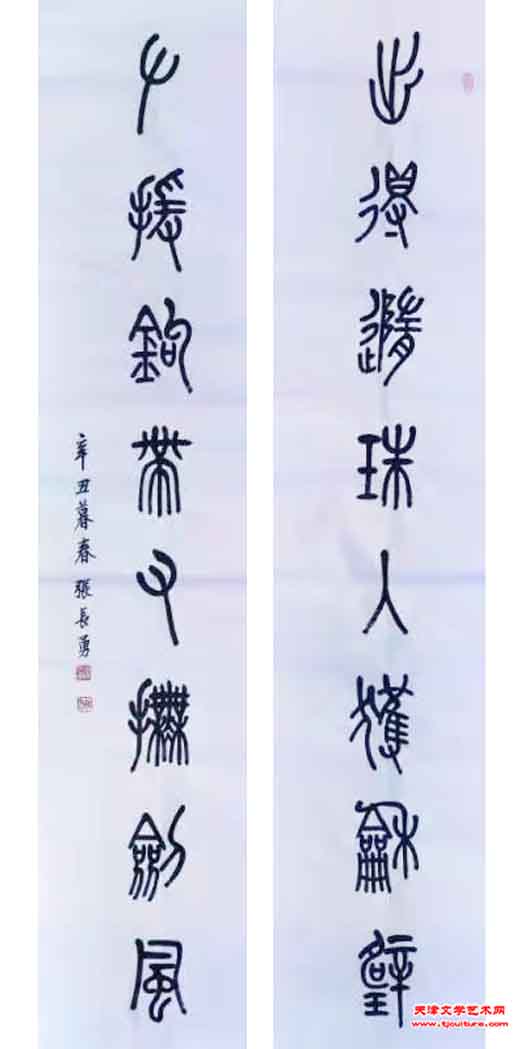 世得隨珠人獲龢璧
𠂇援鉤帶又撫劍風
辛丑暮春張長勇
天津文学艺术网
www.tjculture.com